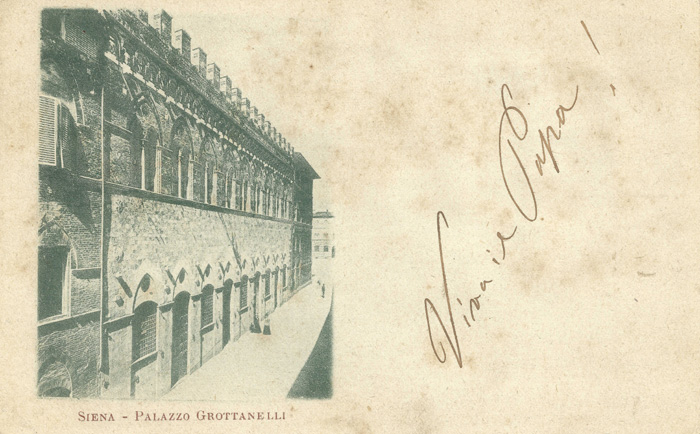 Viva il Papa!
SIENA - PALAZZO GROTTANELLI